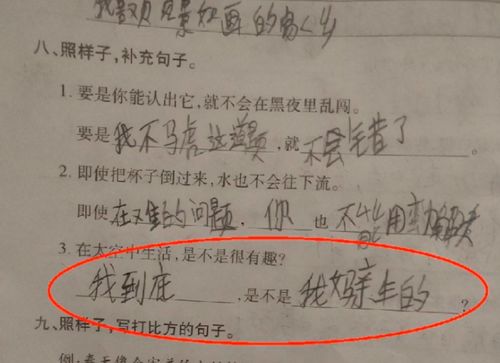 景如画的
八、照样子，补充句子。
1. 要是你能认出它，就不会在黑夜里乱闯。
要是我不马虎这道题，就不会错了。
2. 即使把杯子倒过来，水也不会往下流。
即使在难的问题，你也不能用蛮力解决
3. 在太空中生活，是不是很有趣？
我到底，是不是我妈亲生的？
九、照样子，写打比方的句子。